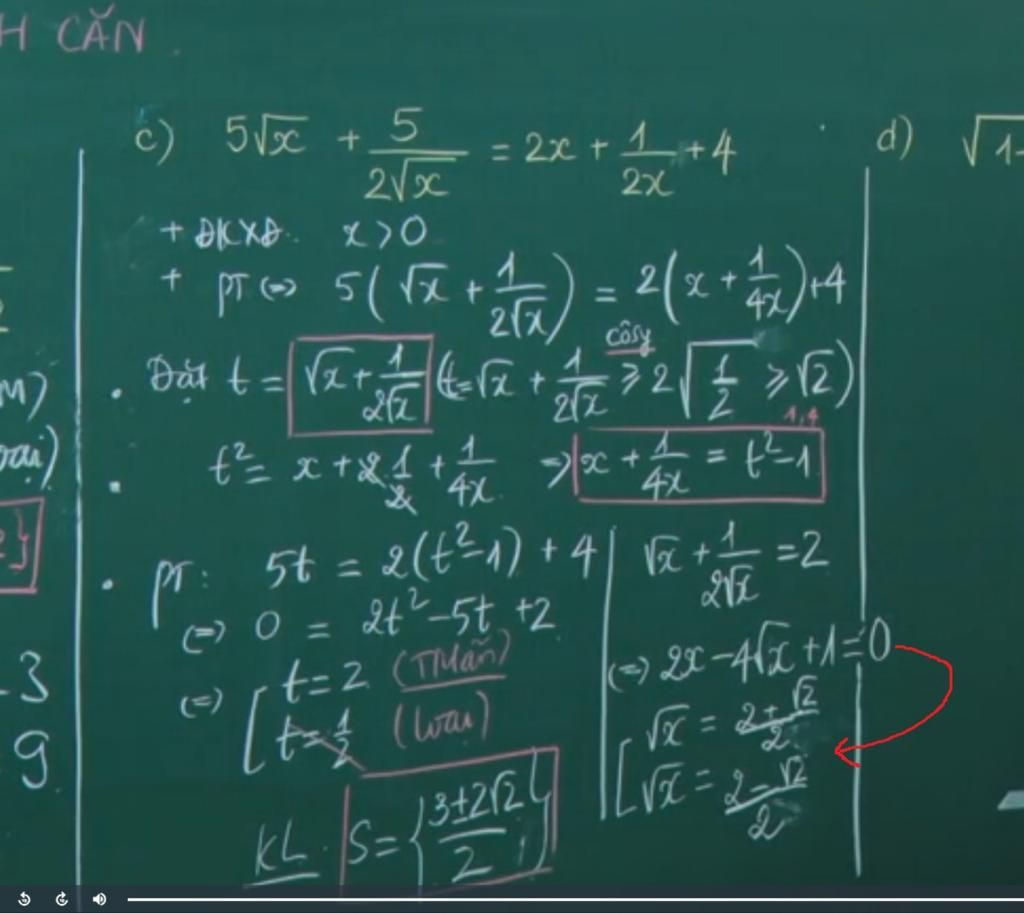 H CĂN
c) 5√x + 5/(2√x) = 2x + 1/(2x) + 4
d) √1-
+ ĐKXĐ. x > 0
+ PT (=) 5(√x + 1/(2√x)) = 2(x + 1/(4x)) + 4
côsy
• Đặt t = √x + 1/(2√x) (t = √x + 1/(2√x) ≥ 2√(1/2) ≥ √2)
1,4
• t² = x + 2·1/2 + 1/(4x) => x + 1/(4x) = t² - 1
• PT: 5t = 2(t² - 1) + 4
(=) 0 = 2t² - 5t + 2
(=) [ t = 2 (Thoả mãn)
t = 1/2 (loại)
KL. S = {(3 ± 2√2)/2}
√x + 1/(2√x) = 2
(=) 2x - 4√x + 1 = 0
[ √x = (2 + √2)/2
√x = (2 - √2)/2
M)
oại)
}
- 3
9